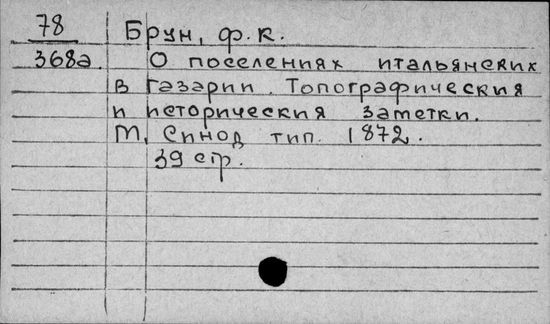 78 Брун, Ф. К.
368а О поселениях итальянских
в Газарии. Топографическия
и историческия заметки.
М, Синод тип. 1872.
39 стр.